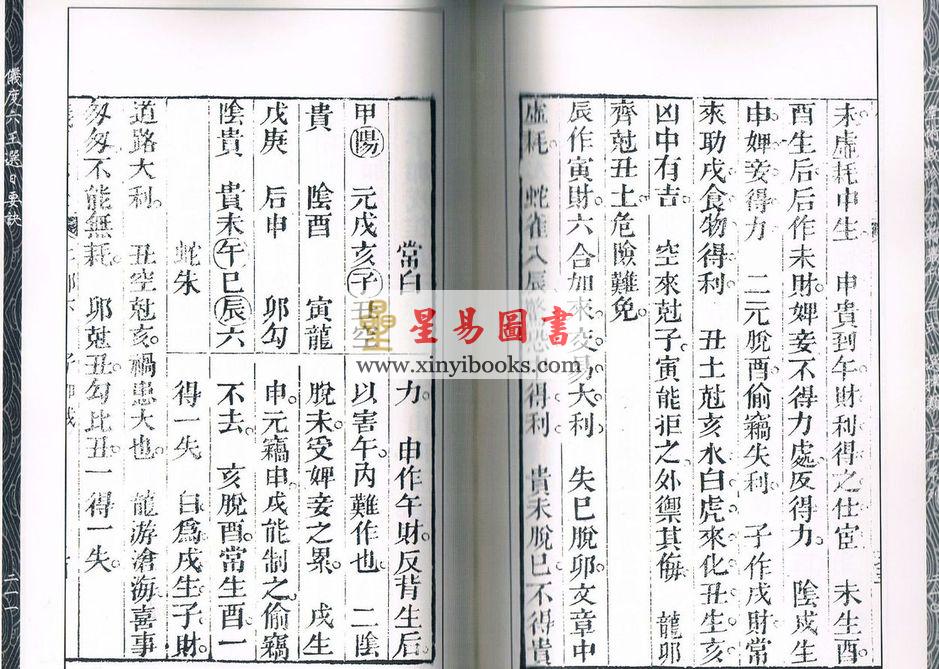 未虛耗申生　申貴到午財利得之仕宦　未生酉
酉生后后作未財婢妾不得力處反得力　陰戌生
申婢妾得力　二元脫酉偷竊失利　子作戌財常
來助戌食物得利　丑土尅亥水白虎來化丑生亥
凶中有吉　空來尅子寅能拒之外禦其侮　龍卯
齊尅丑土危險難免
辰作寅財六合加來交易大利　失巳脫卯文章中
虛耗　蛇雀入辰將恐　得利　貴未脫巳不得貴
常白
甲陽　元戌亥子丑空
貴　陰酉　寅龍
戊庚　后申　卯勾
陰貴　貴未午巳辰六
蛇朱
力　申作午財反背生后
以害午丙難作也　二陰
脫未受婢妾之累　戌生
申元竊申戌能制之偷竊
不去　亥脫酉常生酉一
得一失　白爲戌生子財
道路大利　丑空尅亥禍患大也　龍游滄海喜事
匆匆不能無耗　卯尅丑勾比丑一得一失
儀度六壬選日要訣
二一
星易圖書
www.xinyibooks.com